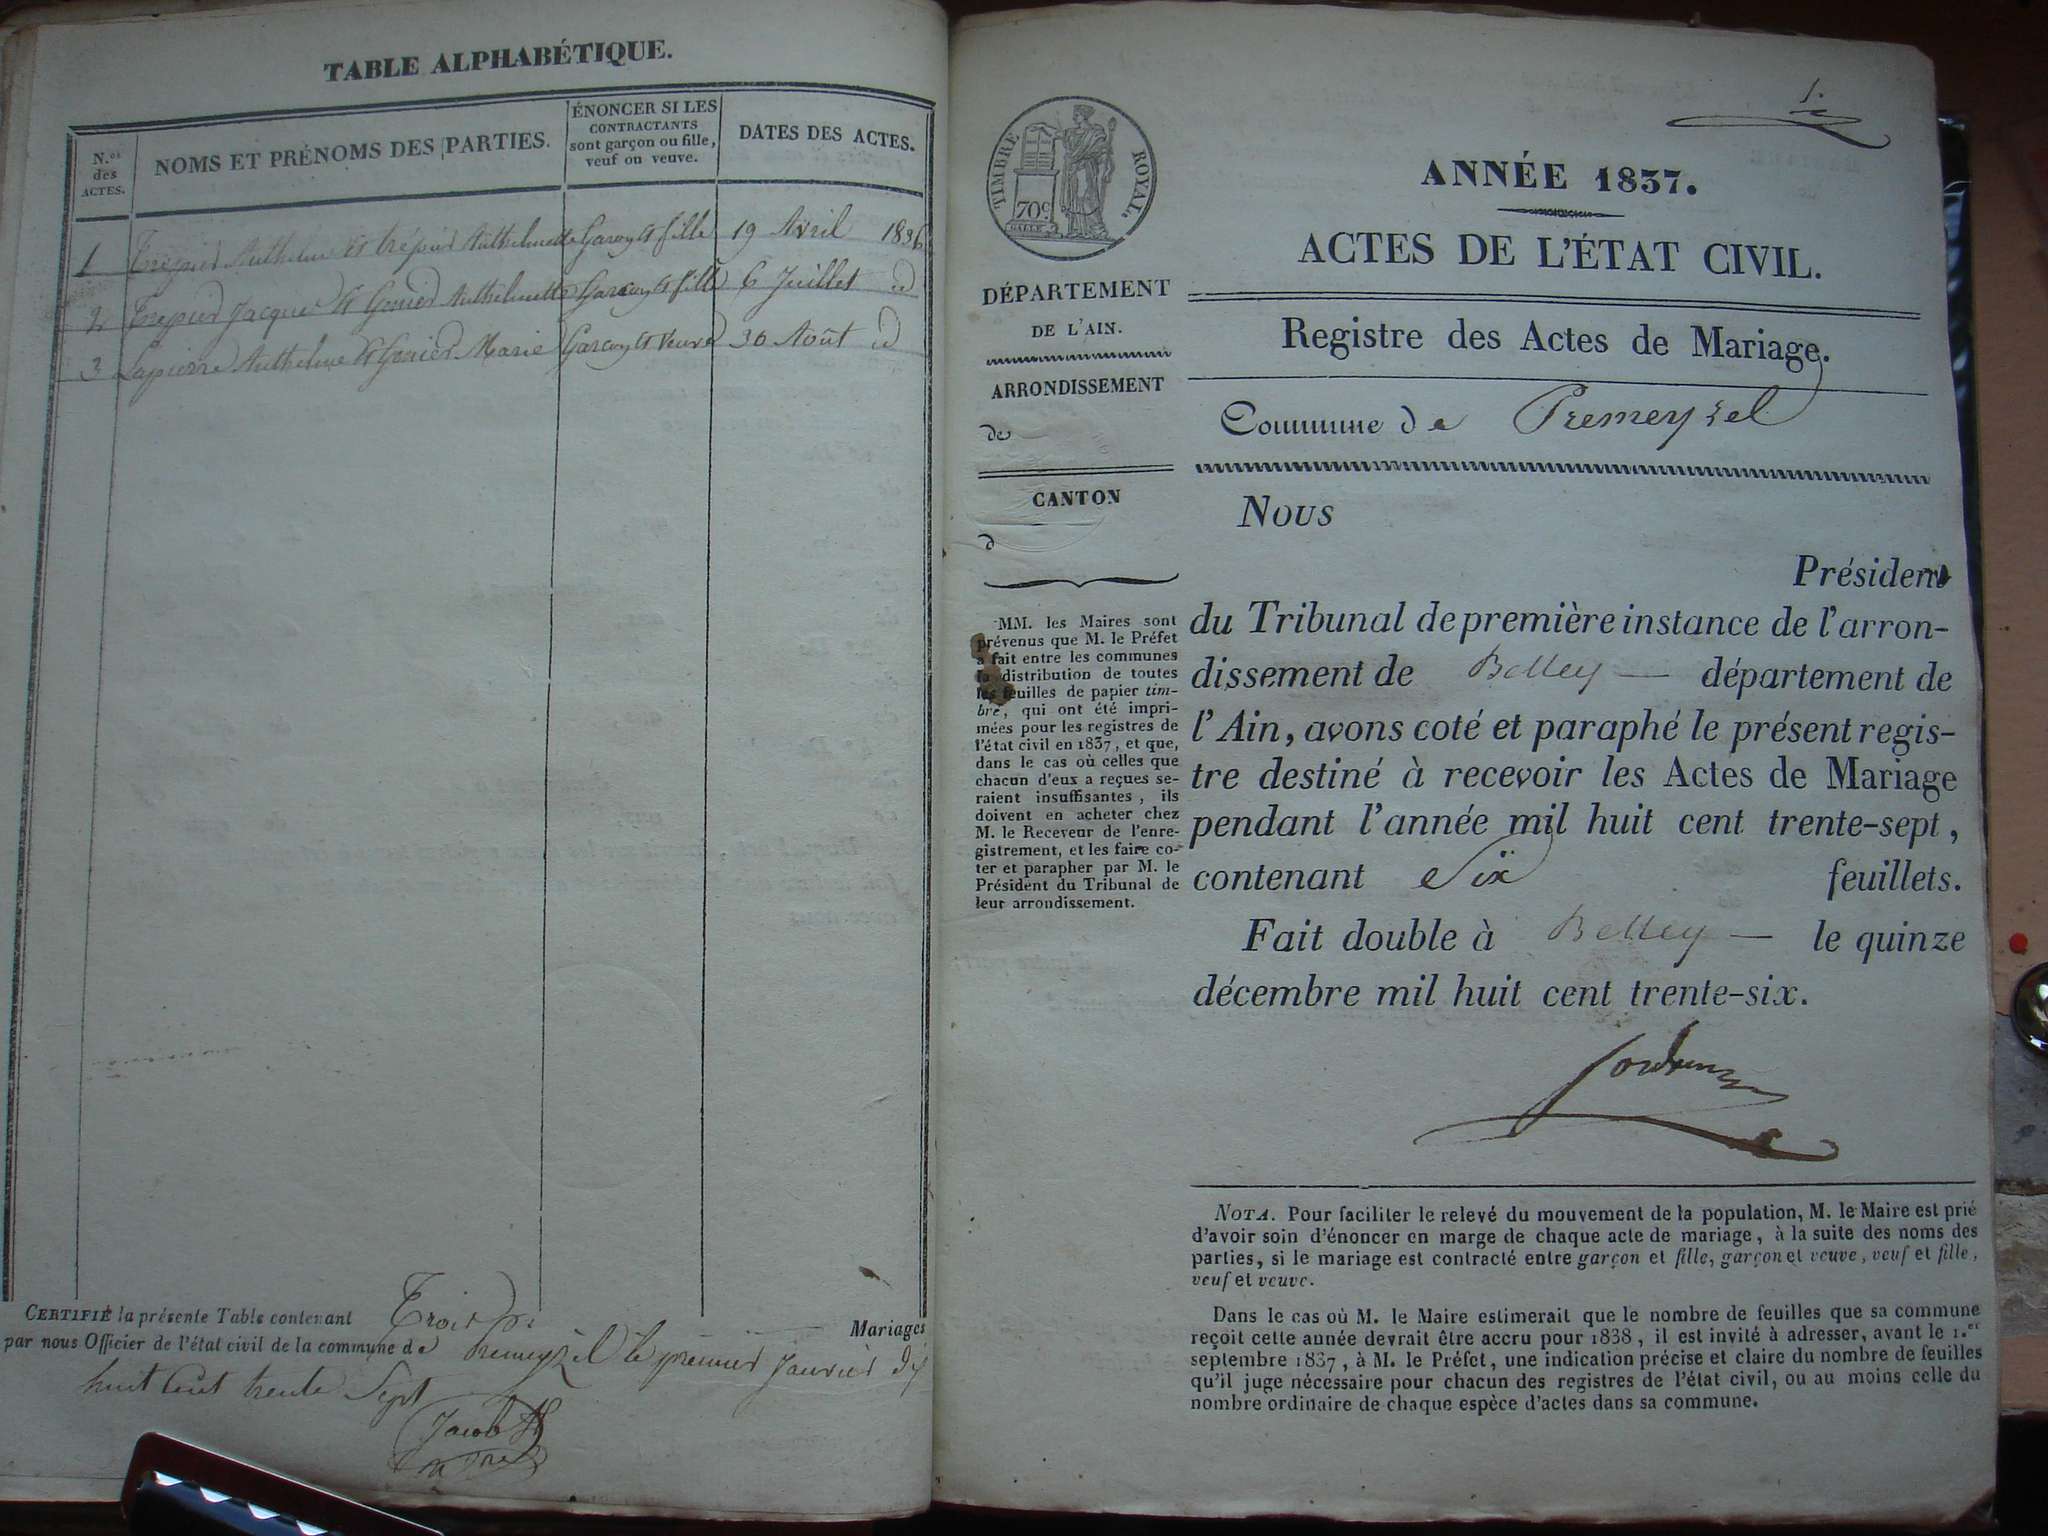 TABLE ALPHABÉTIQUE.
N.os des ACTES.
NOMS ET PRÉNOMS DES PARTIES.
ÉNONCER SI LES
CONTRACTANTS
sont garçon ou fille,
veuf ou veuve.
DATES DES ACTES.
1 Trepier Anthelme & trépier Anthelmette Garcon & fille 19 Avril 1836
2 Trepier Jacques & Gonier Anthelmette Garcon & fille 6 Juillet id
3 Lapierre Anthelme & Gonier Marie Garcon & veuve 30 Août id
CERTIFIÉ la présente Table contenant Trois Mariages
par nous Officier de l'état civil de la commune de Premeyzel le premier Janvier
huit Cent trente Sept
Jacob
1.
TIMBRE ROYAL.
70c
ANNÉE 1837.
ACTES DE L'ÉTAT CIVIL.
Registre des Actes de Mariage.
Commune de Premeyzel
DÉPARTEMENT
DE L'AIN.
ARRONDISSEMENT
de
CANTON
d
MM. les Maires sont
prévenus que M. le Préfet
a fait entre les communes
la distribution de toutes
les feuilles de papier tim-
bré, qui ont été impri-
mées pour les registres de
l'état civil en 1837, et que,
dans le cas où celles que
chacun d'eux a reçues se-
raient insuffisantes, ils
doivent en acheter chez
M. le Receveur de l'enre-
gistrement, et les faire co-
ter et parapher par M. le
Président du Tribunal de
leur arrondissement.
Nous
Président
du Tribunal de première instance de l'arron-
dissement de Belley — département de
l'Ain, avons coté et paraphé le présent regis-
tre destiné à recevoir les Actes de Mariage
pendant l'année mil huit cent trente-sept,
contenant Six feuillets.
Fait double à Belley — le quinze
décembre mil huit cent trente-six.
NOTA. Pour faciliter le relevé du mouvement de la population, M. le Maire est prié
d'avoir soin d'énoncer en marge de chaque acte de mariage, à la suite des noms des
parties, si le mariage est contracté entre garçon et fille, garçon et veuve, veuf et fille,
veuf et veuve.
Dans le cas où M. le Maire estimerait que le nombre de feuilles que sa commune
reçoit cette année devrait être accru pour 1838, il est invité à adresser, avant le 1.er
septembre 1837, à M. le Préfet, une indication précise et claire du nombre de feuilles
qu'il juge nécessaire pour chacun des registres de l'état civil, ou au moins celle du
nombre ordinaire de chaque espèce d'actes dans sa commune.